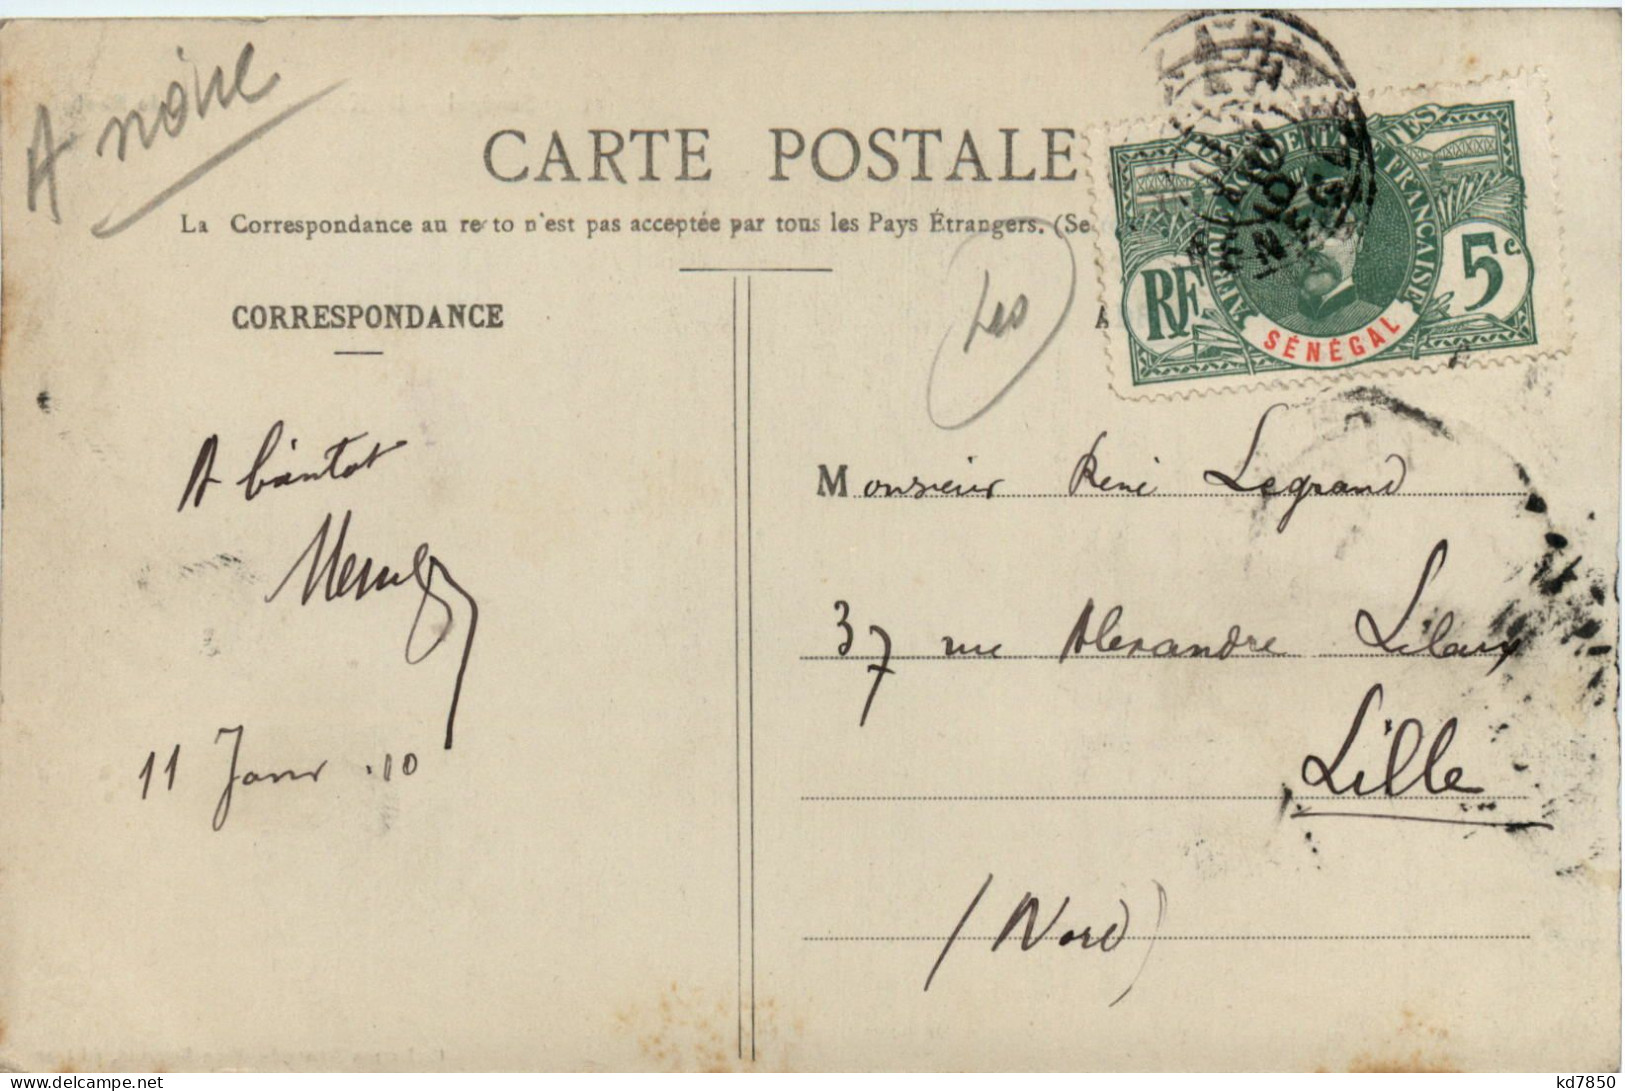 A noire
CARTE POSTALE
La Correspondance au recto n'est pas acceptée par tous les Pays Étrangers. (Se
CORRESPONDANCE
A
AFRIQUE OCCIDENTALE FRANÇAISE
POSTES
RF
5 c.
SÉNÉGAL
A bientot
11 Janv .10
Monsieur René Legrand
37 rue Alexandre Leleux
Lille
(Nord)
kd7850